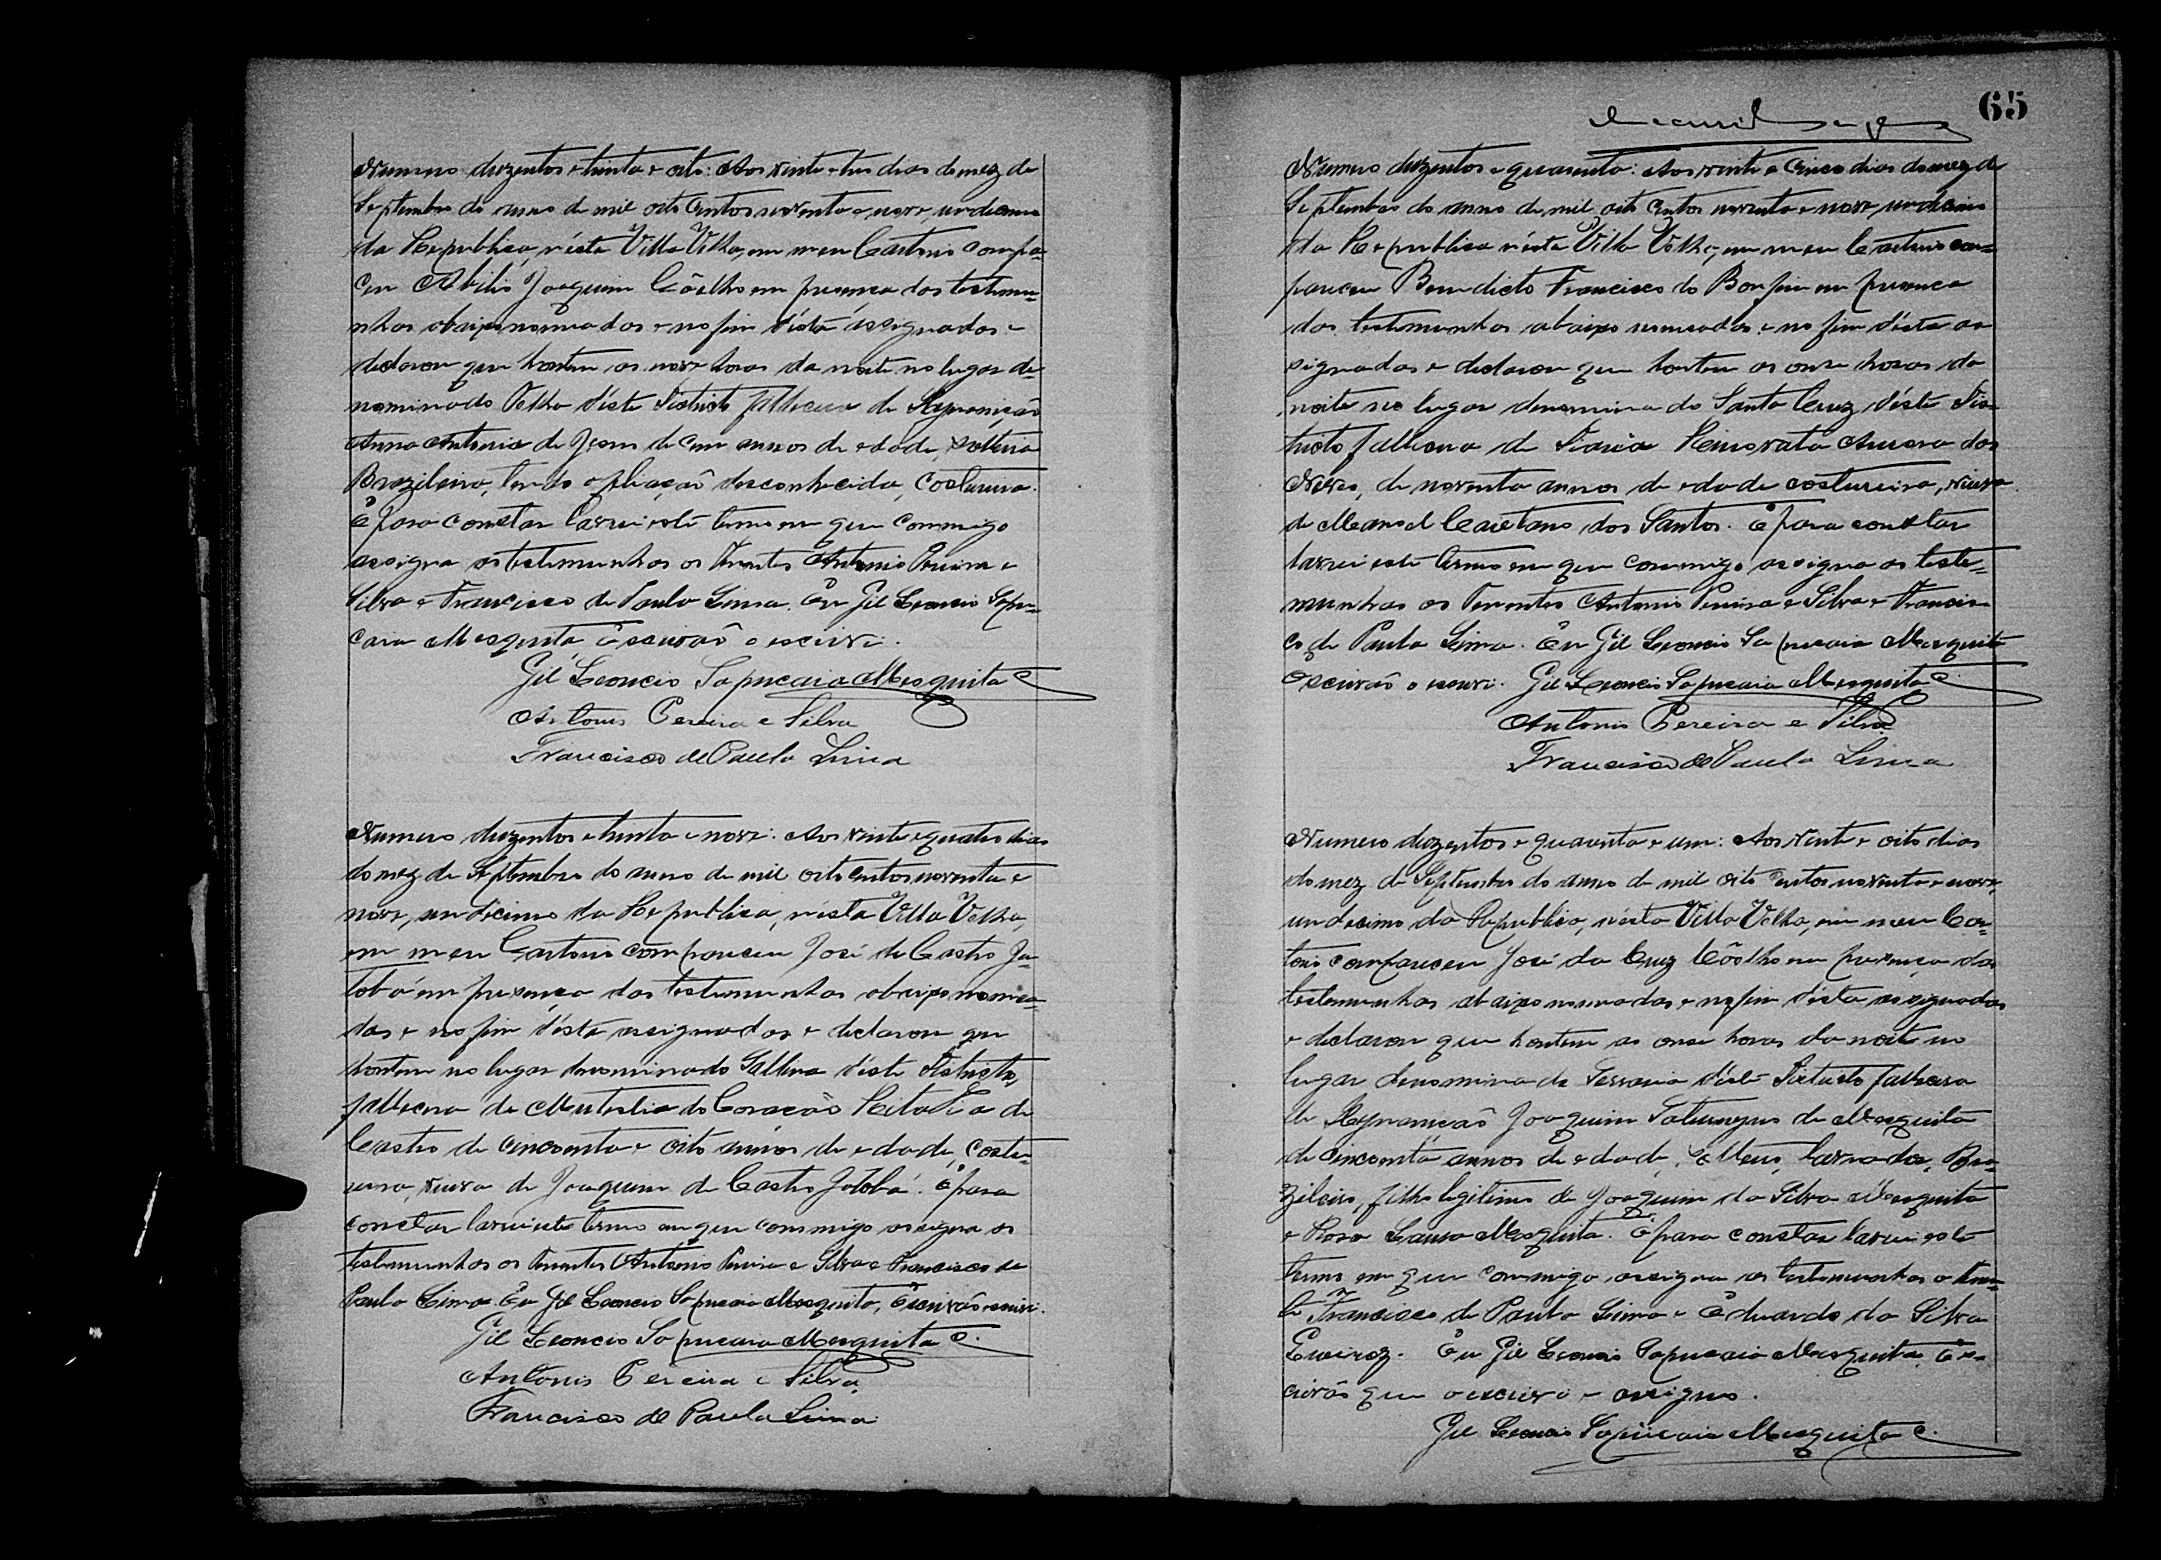 Numero duzentos e trinta e oito: Aos vinte e tres dias do mez de
Septembro do anno de mil oito centos noventa e nove, undecimo
da Republica, n'ésta Villa Velha, em meu Cartorio compa=
ceu Abilio Joaquim Coêlho em presença das testemu=
nhas abaixo nomeadas e no fim d'ésta assignadas e
declarou que hontem as nove horas da noite no lugar de=
nominado Velha d'éste Districto fallecera de
Anna Antonia de Jesus de cem annos de edade, solteira
Brazileira, tendo a filiação desconhecida, Costureira.
E para constar lavrei este termo em que commigo
assigna as testemunhas os Tenentes Antonio Pereira e
Silva e Francisco de Paula Lima. Eu Gil Leoncio Sapu=
caia Mesquita, Escrivão o escrivi.
Gil Leoncio Sapucaia Mesquita
Antonio Pereira e Silva
Francisco de Paula Lima
Numero duzentos e trinta e nove: Aos vinte e quatro dias
do mez de Septembro do anno de mil oito centos noventa e
nove, undecimo da Republica, n'ésta Villa Velha,
em meu Cartorio compareceu José de Castro Ja=
tobá em presença das testemunhas abaixo nomea=
das e no fim d'ésta assignadas e declarou que
hontem no lugar denominado d'éste Districto,
fallecera de do Coração Rita de
Castro de cincoenta e oito annos de edade, costu=
reira, viuva de Joaquim de Castro Jatobá. E para
constar lavrei este termo em que commigo assigna as
testemunhas os Tenentes Antonio Pereira e Silva e Francisco de
Paula Lima. Eu Gil Leoncio Sapucaia Mesquita, Escrivão o escrivi.
Gil Leoncio Sapucaia Mesquita
Antonio Pereira e Silva
Francisco de Paula Lima
65
Numero duzentos e quarenta: Aos vinte e cinco dias do mez de
Septembro do anno de mil oito centos noventa e nove, undecimo
da Republica n'ésta Villa Velha, em meu Cartorio com=
pareceu Benedicto Francisco do Bonfim em presença
das testemunhas abaixo nomeadas e no fim d'ésta as
signadas e declarou que hontem as onze horas da
noite no lugar denominado Santa Cruz d'éste Dis
tricto fallecera de Honorata dos
Neves, de noventa annos de edade costureira, viuva
de Manoel Caetano dos Santos. E para constar
lavrei este termo em que commigo assigna as teste=
munhas os Tenentes Antonio Pereira e Silva e Francis
co de Paula Lima. Eu Gil Leoncio Sapucaia Mesquita
Escrivão o escrivi. Gil Leoncio Sapucaia Mesquita
Antonio Pereira e Silva
Francisco de Paula Lima
Numero duzentos e quarenta e um: Aos vinte e oito dias
do mez de Septembro do anno de mil oito centos noventa e nove,
undecimo da Republica, n'ésta Villa Velha, em meu Car=
torio compareceu José da Cruz Coêlho em presença das
testemunhas abaixo nomeadas e no fim d'ésta assignadas
e declarou que hontem as onze horas da noite no
lugar denominado d'éste Districto fallecera
de Joaquim de Mesquita
de cincoenta annos de edade, solteiro, lavrador, Bra=
zileiro, filho legitimo de Joaquim da Silva Mesquita
e Rosa Mesquita. E para constar lavrei este
termo em que commigo assigna as testemunhas o Tenen=
te Francisco de Paula Lima e Eduardo da Silva
Queiroz. Eu Gil Leoncio Sapucaia Mesquita, Es=
crivão que o escrivi e assigno.
Gil Leoncio Sapucaia Mesquita